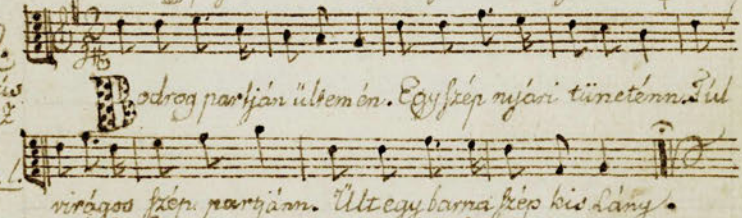 Bodrog partján ültem én. Egy szép nyári tüneténn. Túl
virágos szép partjánn. Ült egy barna szép kis Lány.